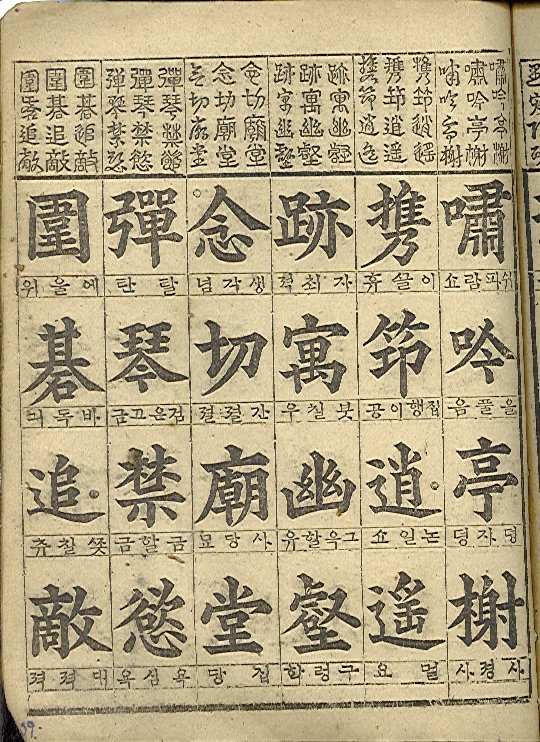 嘯吟亭榭
嘯吟亭榭
嘯吟亭榭
携笻逍遙
携笻逍遙
携笻逍遙
跡寓幽壑
跡寓幽壑
跡寓幽壑
念切廟堂
念切廟堂
念切廟堂
彈琴禁慾
彈琴禁慾
彈琴禁慾
圍碁追敵
圍碁追敵
圍碁追敵
嘯
쉬파람쇼
吟
을풀음
亭
뎡자뎡
榭
사졍사
携
이끌휴
笻
집행이공
逍
논일쇼
遙
멀요
跡
자최젹
寓
붓칠우
幽
그윽할유
壑
구렁학
念
생각념
切
간졀졀
廟
사당묘
堂
집당
彈
탈탄
琴
禁
금할금
慾
욕심욕
圍
에울위
碁
바독긔
追
쫏칠츄
敵
대젹젹